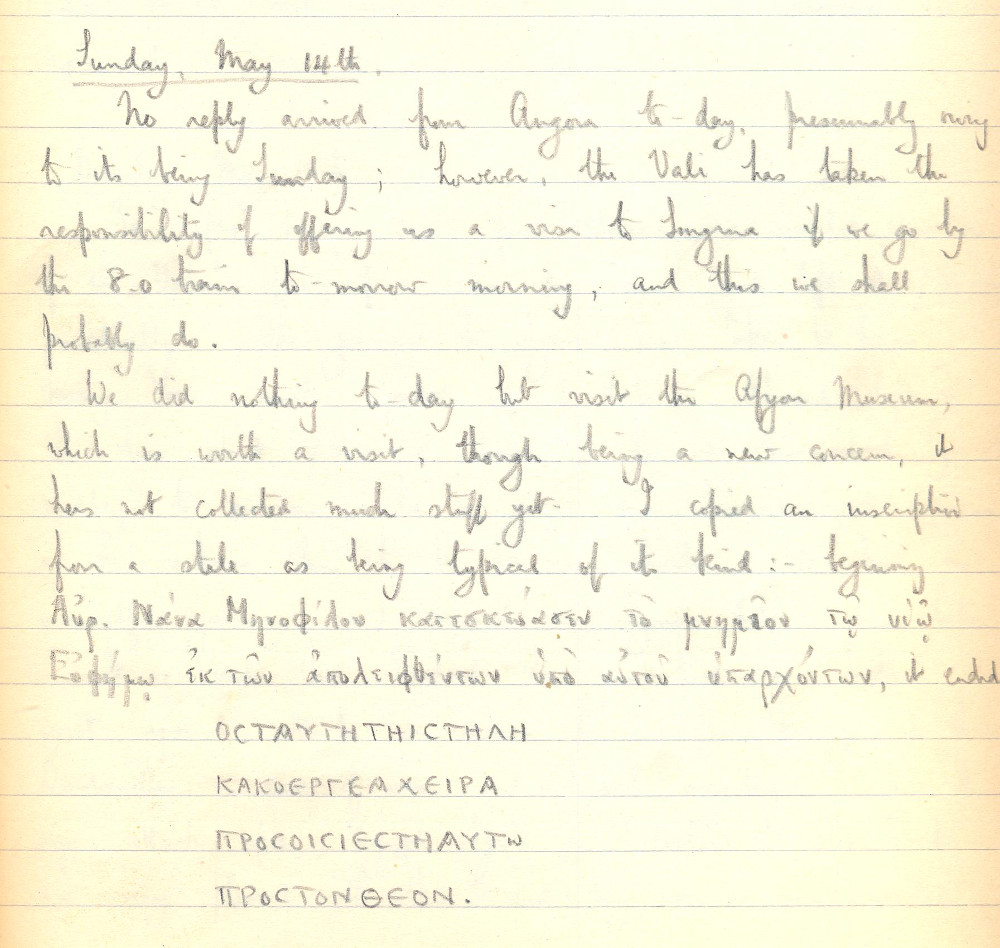 Sunday, May 14th.
No reply arrived from Angora to-day, presumably owing
to its being Sunday; however, the Vali has taken the
responsibility of offering us a visa to Smyrna if we go by
the 8.0 train to-morrow morning, and this we shall
probably do.
We did nothing to-day but visit the Afyon Museum,
which is worth a visit, though being a new concern, it
has not collected much stuff yet. I copied an inscription
from a stele as being typical of its kind:- beginning
Αὐρ. Νάνα Μηνοφίλου κατεσκεύασεν τὸ μνημεῖον τῷ υἱῷ
Εὐφήμῳ ἐκ τῶν ἀπολειφθέντων ὑπὸ αὐτοῦ ὑπαρχόντων, it ended
ΟϹΤΑΥΤΗΤΗΙϹΤΗΛΗ
ΚΑΚΟΕΡΓΕΑΧΕΙΡΑ
ΠΡΟϹΟΙϹΙΕϹΤΗΑΥΤω
ΠΡΟϹΤΟΝΘΕΟΝ.